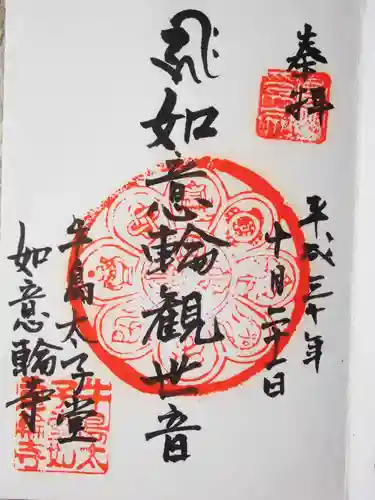 奉拝
平成三十年
十月二十一日
如意輪観世音
牛島太子堂
如意輪寺